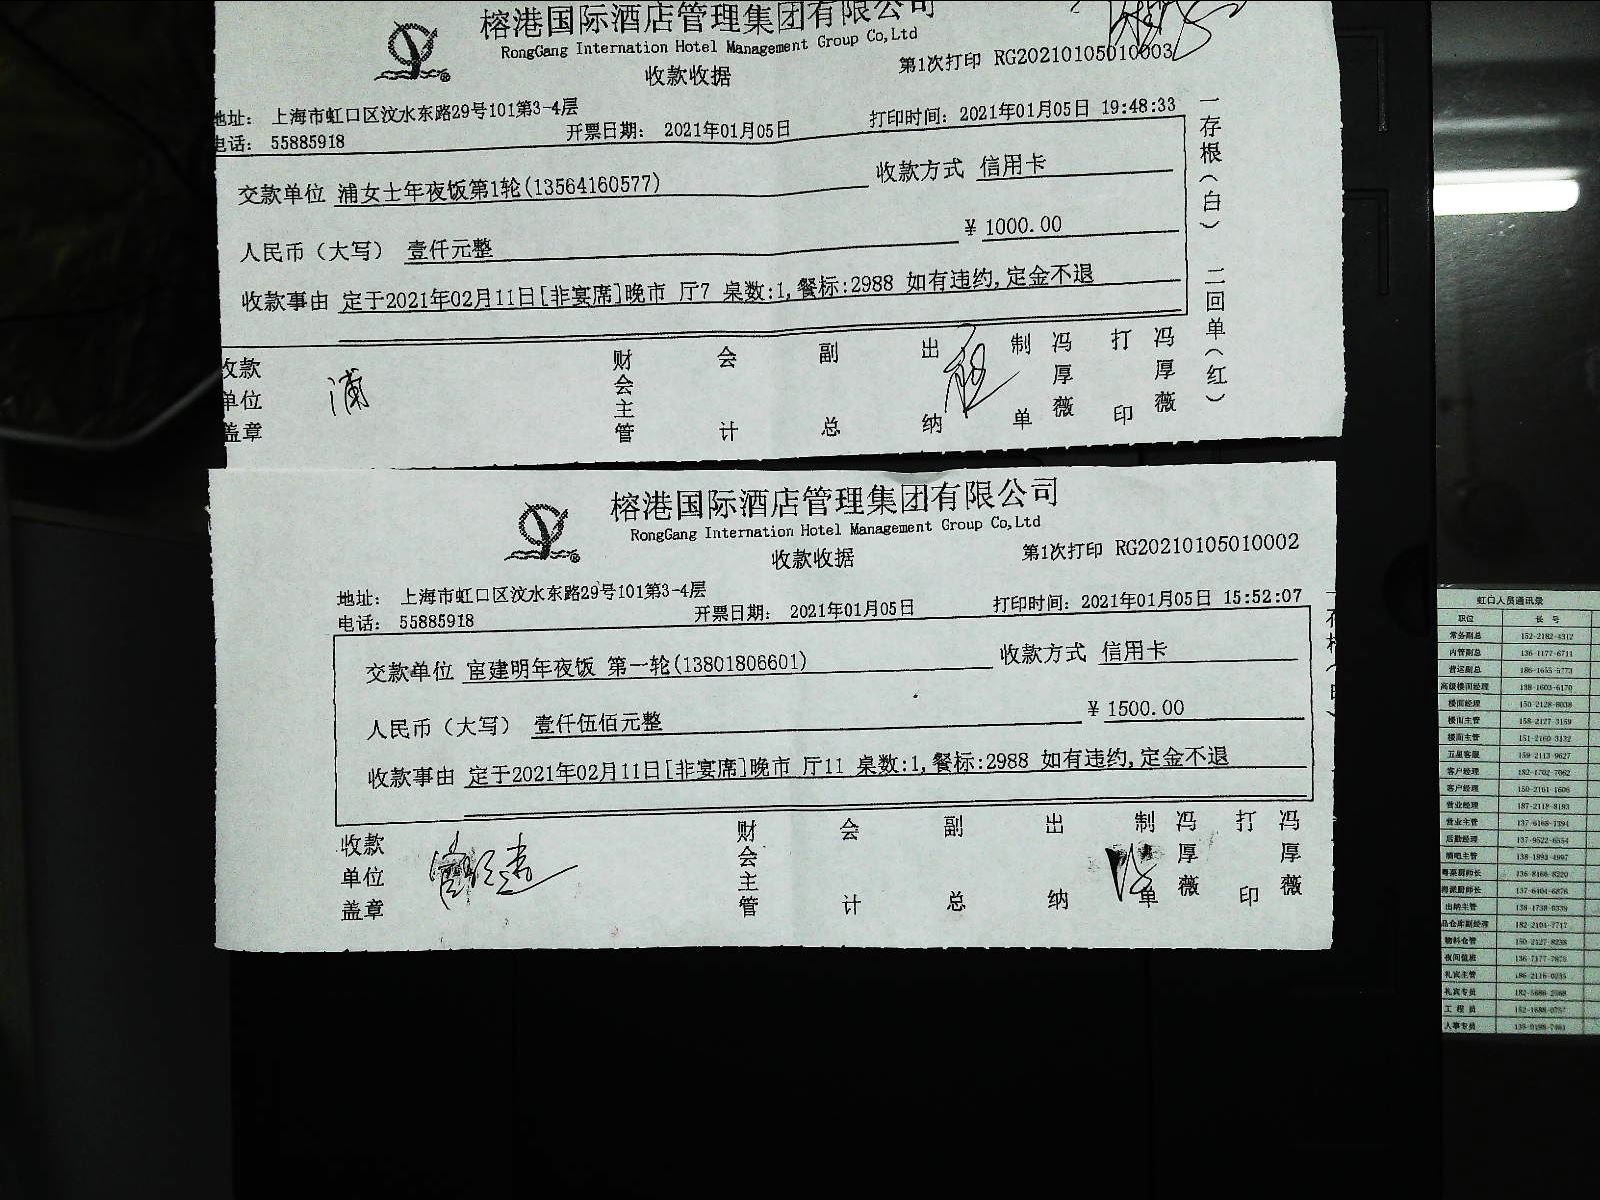 榕港国际酒店管理集团有限公司
RongGang Internation Hotel Management Group Co,Ltd
收款收据
第1次打印 RG20210105010003
地址: 上海市虹口区汶水东路29号101第3-4层
电话: 55885918
开票日期: 2021年01月05日
打印时间: 2021年01月05日 19:48:33
交款单位 浦女士年夜饭第1轮(13564160577)
收款方式 信用卡
人民币(大写) 壹仟元整
¥ 1000.00
收款事由 定于2021年02月11日[非宴席]晚市 厅7 桌数:1,餐标:2988 如有违约,定金不退
一存根(白) 二回单(红)
收款单位盖章 浦
财会主管 会计 副总 出纳 制单 冯厚薇 打印 冯厚薇
榕港国际酒店管理集团有限公司
RongGang Internation Hotel Management Group Co,Ltd
收款收据
第1次打印 RG20210105010002
地址: 上海市虹口区汶水东路29号101第3-4层
电话: 55885918
开票日期: 2021年01月05日
打印时间: 2021年01月05日 15:52:07
交款单位 宦建明年夜饭 第一轮(13801806601)
收款方式 信用卡
人民币(大写) 壹仟伍佰元整
¥ 1500.00
收款事由 定于2021年02月11日[非宴席]晚市 厅11 桌数:1,餐标:2988 如有违约,定金不退
收款单位盖章
财会主管 会计 副总 出纳 制单 冯厚薇 打印 冯厚薇
虹口人员通讯录
职位 长号
常务副总 152-2182-4312
内管副总 136-1177-6711
营运副总 186-1655-5773
高级楼面经理 138-1603-6170
楼面经理 150-2128-8038
楼面主管 158-2127-3159
楼面主管 151-2160-3132
五星客服 159-2113-9627
客户经理 182-1702-7062
客户经理 150-2161-1606
营业经理 187-2118-8193
营业主管
后勤经理 137-9522-6554
酒吧主管
粤菜厨师长
出纳主管
物料仓管
夜间值班
礼宾主管
礼宾专员
工程员
人事专员